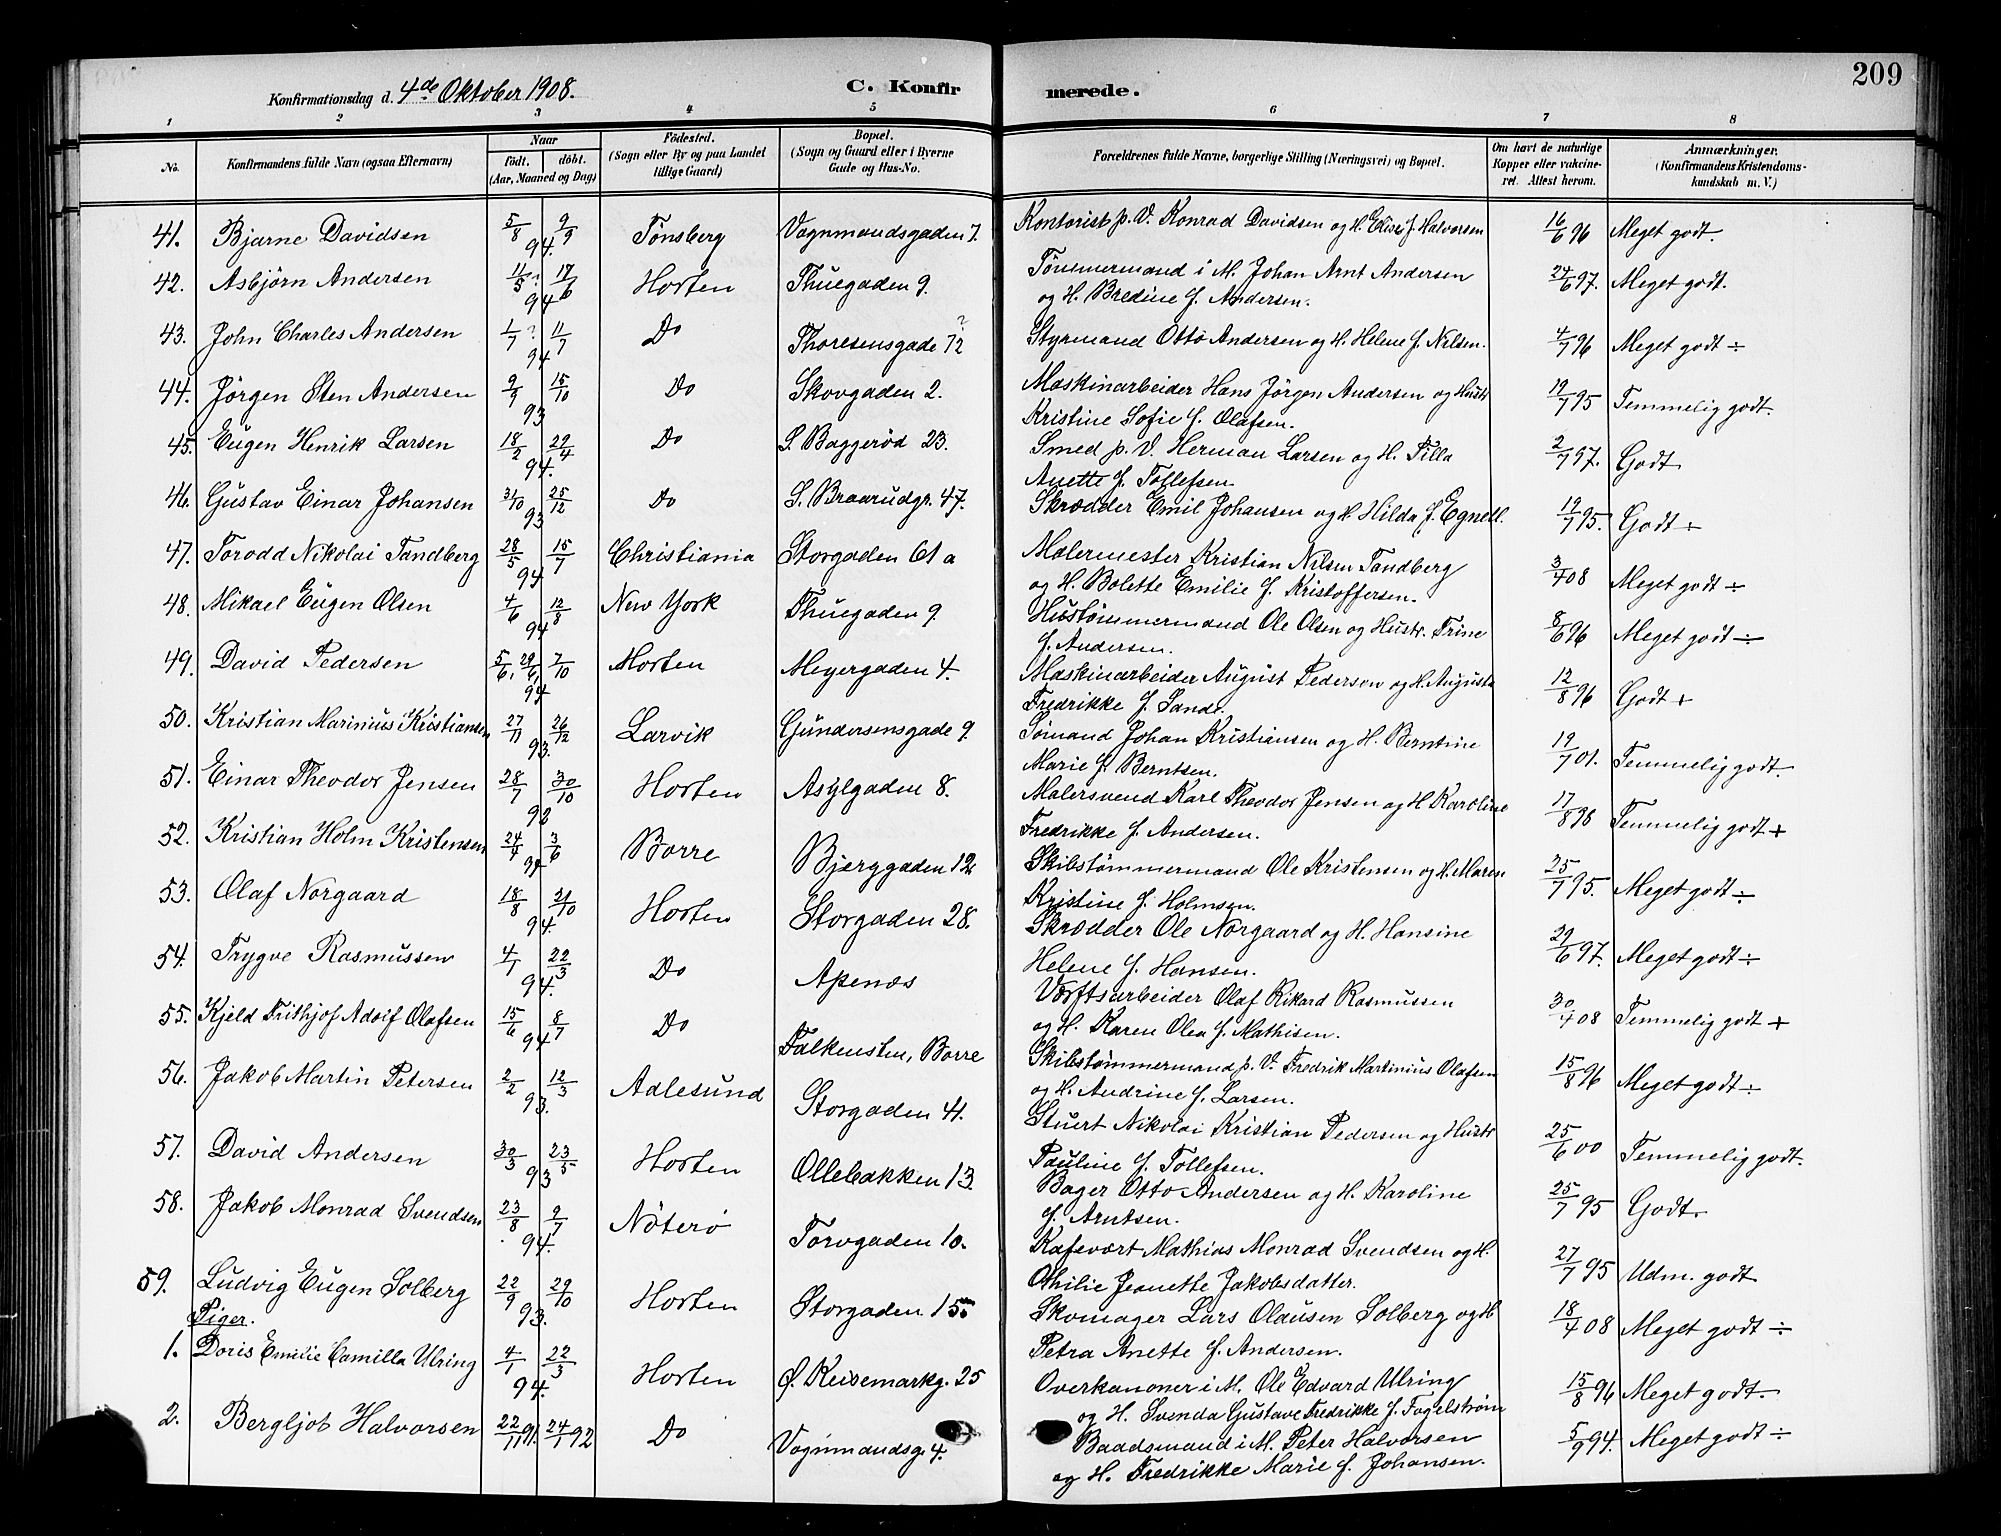 209
Konfirmationsdag d. 4de Oktober 1908.
C. Konfirmerede.
1 2 3 4 5 6 7 8
No.
Konfirmandens fulde Navn (ogsaa Efternavn)
Naar
født. døbt.
(Aar, Maaned og Dag)
Födested.
(Sogn eller By og paa Landet
tillige Gaard)
Bopæl.
(Sogn og Gaard eller i Byerne
Gade og Hus-No.
Forældrenes fulde Navne, borgerlige Stilling (Næringsvei) og Bopæl.
Om havt de naturlige
Kopper eller vakcine-
ret. Attest herom.
Anmærkninger.
(Konfirmandens Kristendoms-
kundskab m. V.)
41. Bjarne Davidsen 5/8 9/9 94. Tønsberg Vognmandsgaden 7. Kontorist p. V. Konrad Davidsen og H. Elise f. Halvorsen 16/6 96 Meget godt.
42. Asbjörn Andersen 11/5 17/6 94 Horten Thuegaden 9. Tömmermand i M. Johan Arnt Andersen
og H. Bredine f. Andersen. 24/6 97. Meget godt.
43. John Charles Andersen 1/7 ? 11/7 94 Do Thoresensgade 12 ? Styrmand Otto Andersen og H. Helene f. Nilsen. 4/7 96 Meget godt ÷
44. Jörgen Sten Andersen 9/9 15/10 93 Do Skovgaden 2. Maskinarbeider Hans Jörgen Andersen og Hustr
Kristine Sofie f. Olafsen. 19/7 95 Temmelig godt.
45. Eugen Henrik Larsen 18/2 29/4 94. Do S. Baggerød 23. Smed p. V. Herman Larsen og H. Tilla
Anette f. Tollefsen 2/7 97. Godt
46. Gustav Einar Johansen 31/10 25/12 93 Do S. Braarudgr. 47. Skrædder Emil Johansen og H. Hilda f. Egnell. 19/7 95. Godt ÷
47. Torodd Nikolai Tandberg 28/5 15/7 94 Christiania Storgaden 61 a Malermester Kristian Nilsen Tandberg
og H. Bolette Emilie f. Kristoffersen. 3/4 08 Meget godt ÷
48. Mikael Eugen Olsen 4/6 12/8 94 New York Thuegaden 9. Hustömmermand Ole Olsen og Hustr. Trine
f. Andersen. 8/6 96 Meget godt ÷
49. David Pedersen 5/6, 29/6, 7/10 94 Horten Meyergaden 4. Maskinarbeider August Pedersen og H. Augusta
Fredrikke f. Sande. 12/8 96 Godt +
50. Kristian Marinius Kristiansen 27/11 26/12 93. Larvik Gundersensgade 9. Sømand Johan Kristiansen og H. Berntine
Marie f. Berntsen. 19/7 01. Temmelig godt.
51. Einar Theodor Jensen 28/7 30/10 92 Horten Asylgaden 8. Malersvend Karl Theodor Jensen og H Karoline
Fredrikke f. Andersen. 17/8 98 Temmelig godt +
52. Kristian Holm Kristensen 24/4 3/6 94 Borre Bjerggaden 12 Skibstømmermand Ole Kristensen og H. Maren
Kristine f. Holmsen. 25/7 95. Meget godt ÷
53. Olaf Norgaard 18/8 21/10 94. Horten Storgaden 28. Skrædder Ole Norgaard og H. Hansine
Helene f. Hansen. 29/6 97. Meget godt ÷
54. Trygve Rasmussen 4/1 22/3 94. Do Apenæs Værftsarbeider Olaf Rikard Rasmussen
og H. Karen Olea f. Mathisen. 30/4 08 Temmelig godt +
55. Kjeld Frithjof Adolf Olafsen 15/6 8/7 94 Do Falkensten, Borre Skibstømmermand p. V. Fredrik Martinius Olafsen
og H. Andrine f. Larsen. 15/8 96 Meget godt ÷
56. Jakob Martin Petersen 2/2 12/3 93. Aalesund Storgaden 41. Stuert Nikolai Kristian Pedersen og Hustr
Pauline f. Tollefsen. 25/6 00 Temmelig godt.
57. David Andersen 30/3 23/5 93 Horten Ollebakken 13. Bager Otto Andersen og H. Karoline
f. Arntsen. 25/7 95 Godt.
58. Jakob Monrad Svendsen 23/8 9/7 94. Nöterö Torvgaden 10. Kafevært Mathias Monrad Svendsen og H.
Othilie Jeanette Jakobsdatter. 27/7 95 Udm. godt
59. Ludvig Eugen Solberg 22/9 29/10 93. Horten Storgaden 15. Skomager Lars Olausen Solberg og H
Petra Anette f. Andersen. 18/4 08 Meget godt ÷
Piger.
1. Doris Emilie Camilla Ulring 4/1 22/3 94. Horten Ø. Keisemarkg. 25 Overkanoner i M. Ole Edvard Ulring
og H. Svenda Gustave Fredrikke f. Fogelstrøm 15/8 96 Meget godt.
2. Bergljot Halvorsen 22/11 91. 24/1 92 Do Vognmandsg. 4. Baadsmand i M. Peter Halvorsen
og H. Fredrikke Marie f. Johansen. 5/9 94. Meget godt ÷